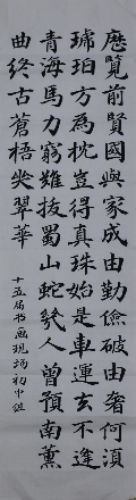 歷覽前賢國與家成由勤儉破由奢何須
琥珀方為枕豈得真珠始是車運去不逢
青海馬力窮難拔蜀山蛇幾人曾預南薰
曲終古蒼梧哭翠華
十五届书画现场初中组